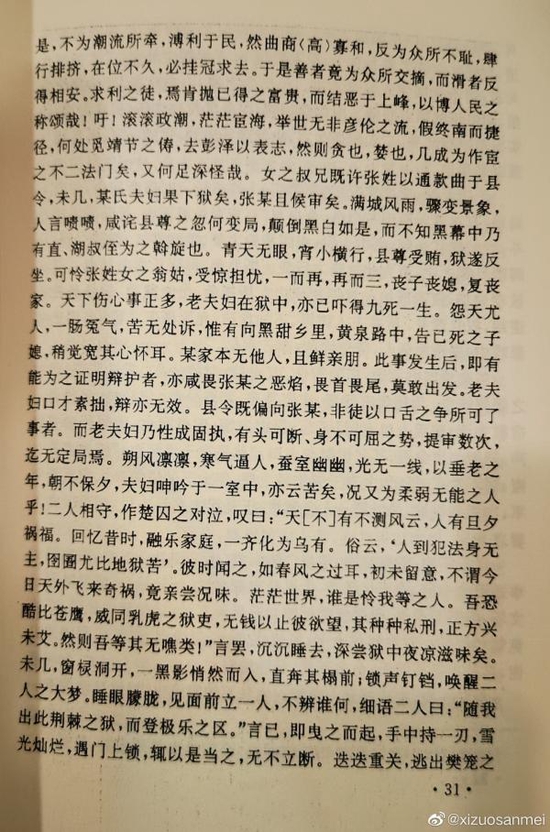 是，不为潮流所牵，溥利于民，然曲商（高）寡和，反为众所不耻，肆
行排挤，在位不久，必挂冠求去。于是善者竟为众所交摘，而滑者反
得相安。求利之徒，焉肯抛已得之富贵，而结恶于上峰，以博人民之
称颂哉！吁！滚滚政潮，茫茫宦海，举世无非彦伦之流，假终南而捷
径，何处觅靖节之俦，去彭泽以表志，然则贪也，婪也，几成为作宦
之不二法门矣，又何足深怪哉。女之叔兄既许张姓以通款曲于县
令，未几，某氏夫妇果下狱矣，张某且候审矣。满城风雨，骤变景象，
人言啧啧，咸诧县尊之忽何变局，颠倒黑白如是，而不知黑幕中乃
有直、湖叔侄为之斡旋也。青天无眼，宵小横行，县尊受贿，狱遂反
坐。可怜张姓女之翁姑，受惊担忧，一而再，再而三，丧子丧媳，复丧
家。天下伤心事正多，老夫妇在狱中，亦已吓得九死一生。怨天尤
人，一肠冤气，苦无处诉，惟有向黑甜乡里，黄泉路中，告已死之子
媳，稍觉宽其心怀耳。某家本无他人，且鲜亲朋。此事发生后，即有
能为之证明辩护者，亦咸畏张某之恶焰，畏首畏尾，莫敢出发。老夫
妇口才素拙，辩亦无效。县令既偏向张某，非徒以口舌之争所可了
事者。而老夫妇乃性成固执，有头可断、身不可屈之势，提审数次，
迄无定局焉。朔风凛凛，寒气逼人，蚕室幽幽，光无一线，以垂老之
年，朝不保夕，夫妇呻吟于一室中，亦云苦矣，况又为柔弱无能之人
乎！二人相守，作楚囚之对泣，叹曰：“天［不］有不测风云，人有旦夕
祸福。回忆昔时，融乐家庭，一齐化为乌有。俗云，‘人到犯法身无
主，囹圄尤比地狱苦’。彼时闻之，如春风之过耳，初未留意，不谓今
日天外飞来奇祸，竟亲尝况味。茫茫世界，谁是怜我等之人。吾恐
酷比苍鹰，威同乳虎之狱吏，无钱以止彼欲望，其种种私刑，正方兴
未艾。然则吾等其无噍类！”言罢，沉沉睡去，深尝狱中夜凉滋味矣。
未几，窗棂洞开，一黑影悄然而入，直奔其榻前；锁声钉铛，唤醒二
人之大梦。睡眼朦胧，见面前立一人，不辨谁何，细语二人曰：“随我
出此荆棘之狱，而登极乐之区。”言已，即曳之而起，手中持一刃，雪
光灿烂，遇门上锁，辄以是当之，无不立断。迭迭重关，逃出樊笼之
·31·
@xizuosanmei